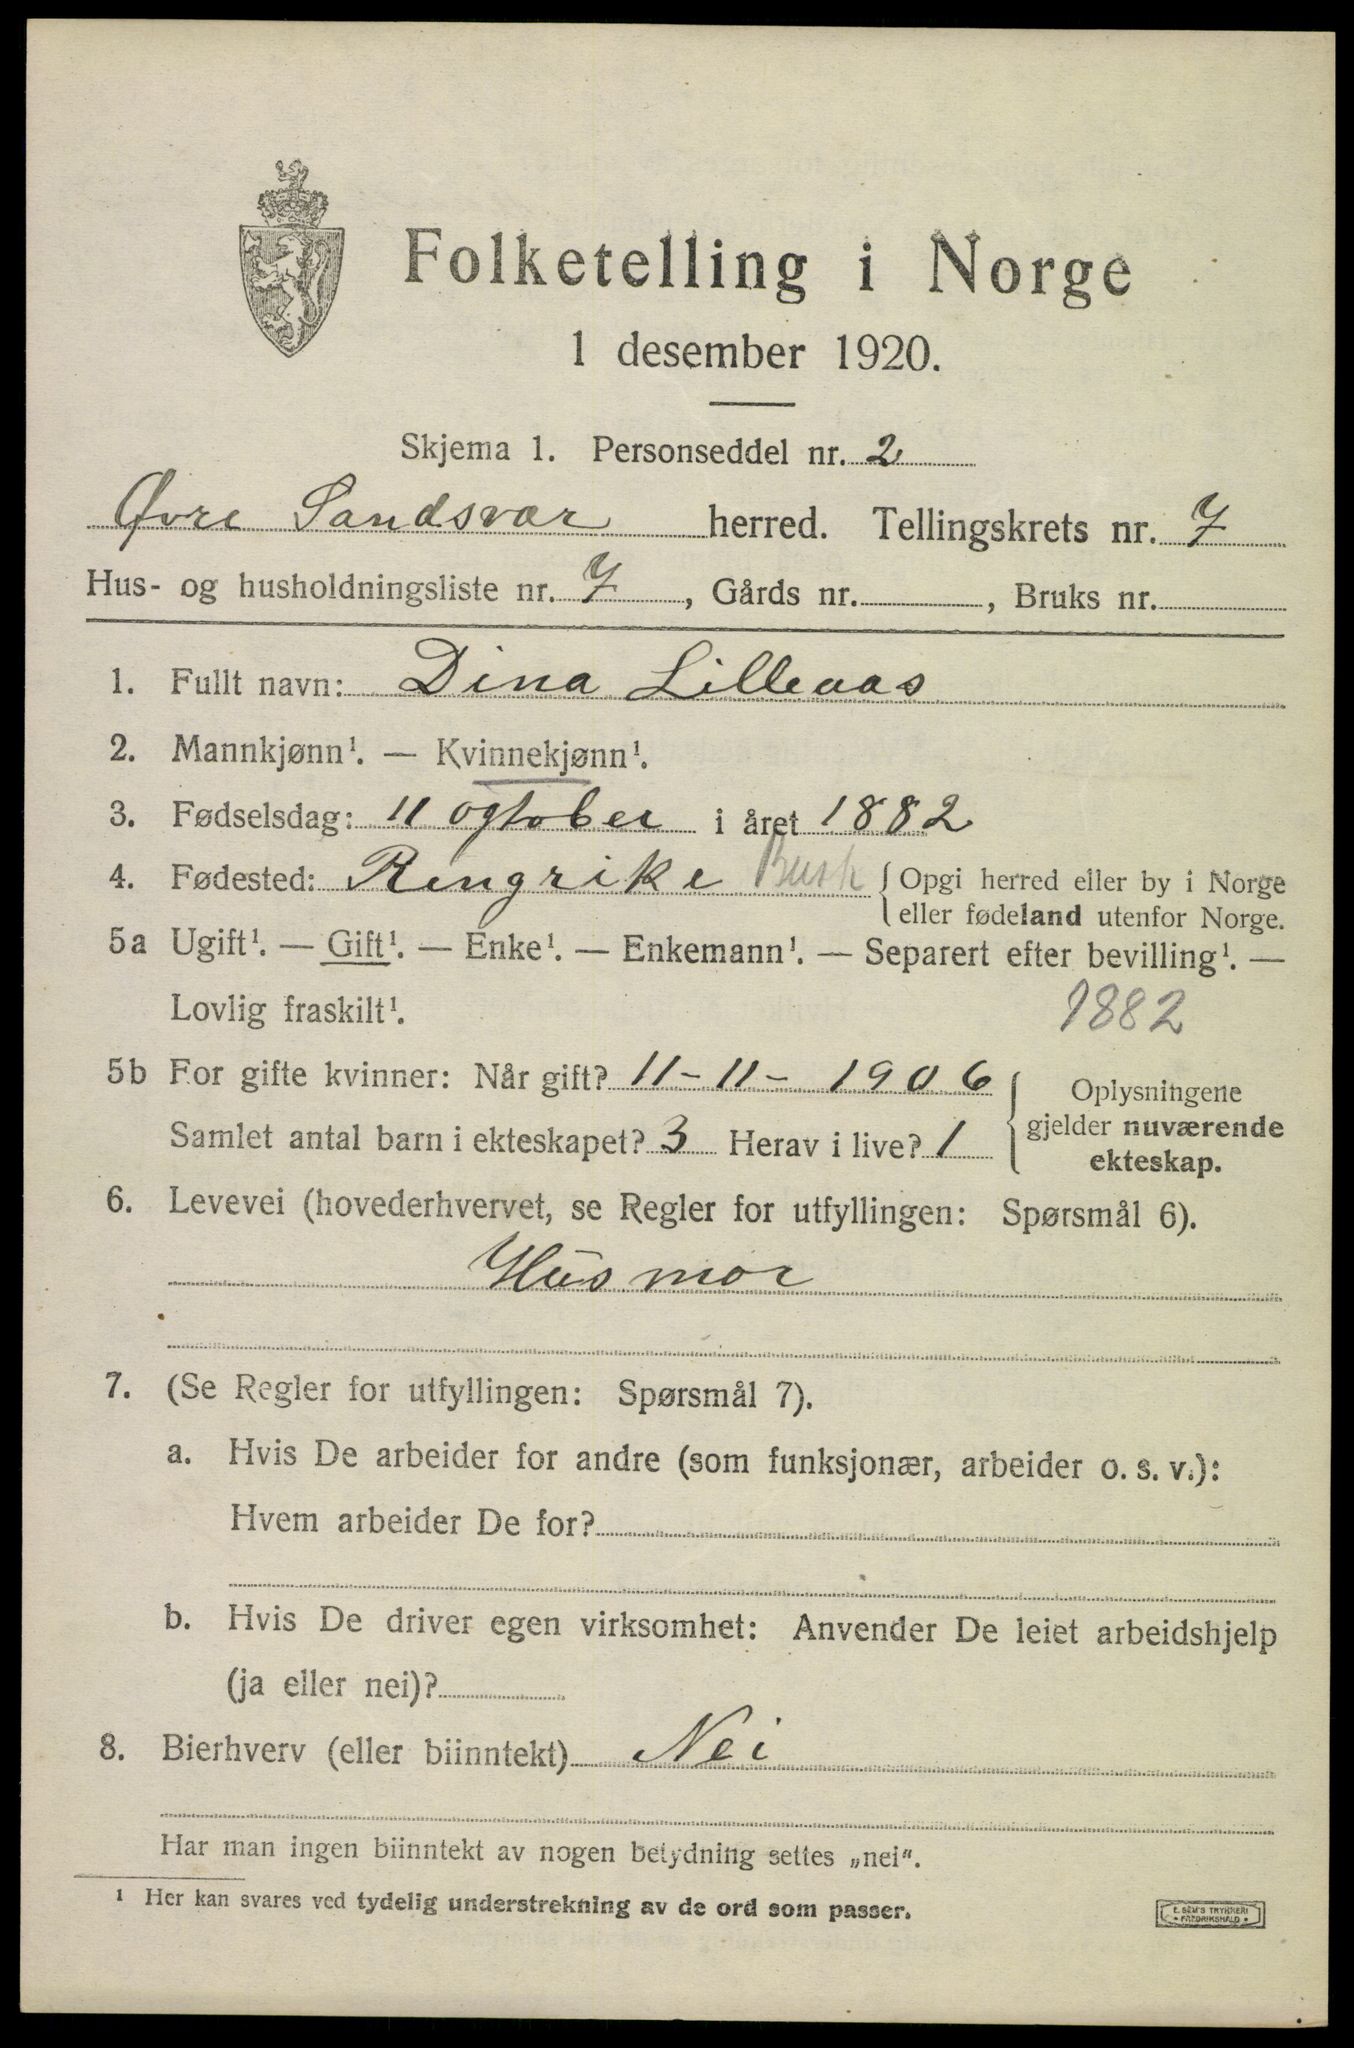 Folketelling i Norge
1 desember 1920.
Skjema 1. Personseddel nr. 2
Øvre Sandsvær herred. Tellingskrets nr. 7
Hus- og husholdningsliste nr. 7, Gårds nr. , Bruks nr.
1. Fullt navn: Dina Lilleaas
2. Mannkjønn¹. — Kvinnekjønn¹.
3. Fødselsdag: 11 ogtober i året 1882
4. Fødested: Rengrike Busk { Opgi herred eller by i Norge
eller fødeland utenfor Norge.
5a Ugift¹. — Gift¹. — Enke¹. — Enkemann¹. — Separert efter bevilling¹. —
Lovlig fraskilt¹. 1882
5b For gifte kvinner: Når gift? 11-11-1906 { Oplysningene
Samlet antal barn i ekteskapet? 3 Herav i live? 1 gjelder nuværende
ekteskap.
6. Levevei (hovederhvervet, se Regler for utfyllingen: Spørsmål 6).
Husmor
7. (Se Regler for utfyllingen: Spørsmål 7).
a. Hvis De arbeider for andre (som funksjonær, arbeider o. s. v.):
Hvem arbeider De for?
b. Hvis De driver egen virksomhet: Anvender De leiet arbeidshjelp
(ja eller nei)?
8. Bierhverv (eller biinntekt) Nei
Har man ingen biinntekt av nogen betydning settes „nei".
¹ Her kan svares ved tydelig understrekning av de ord som passer.
E. SEM'S TRYKKERI
FREDRIKSHALD